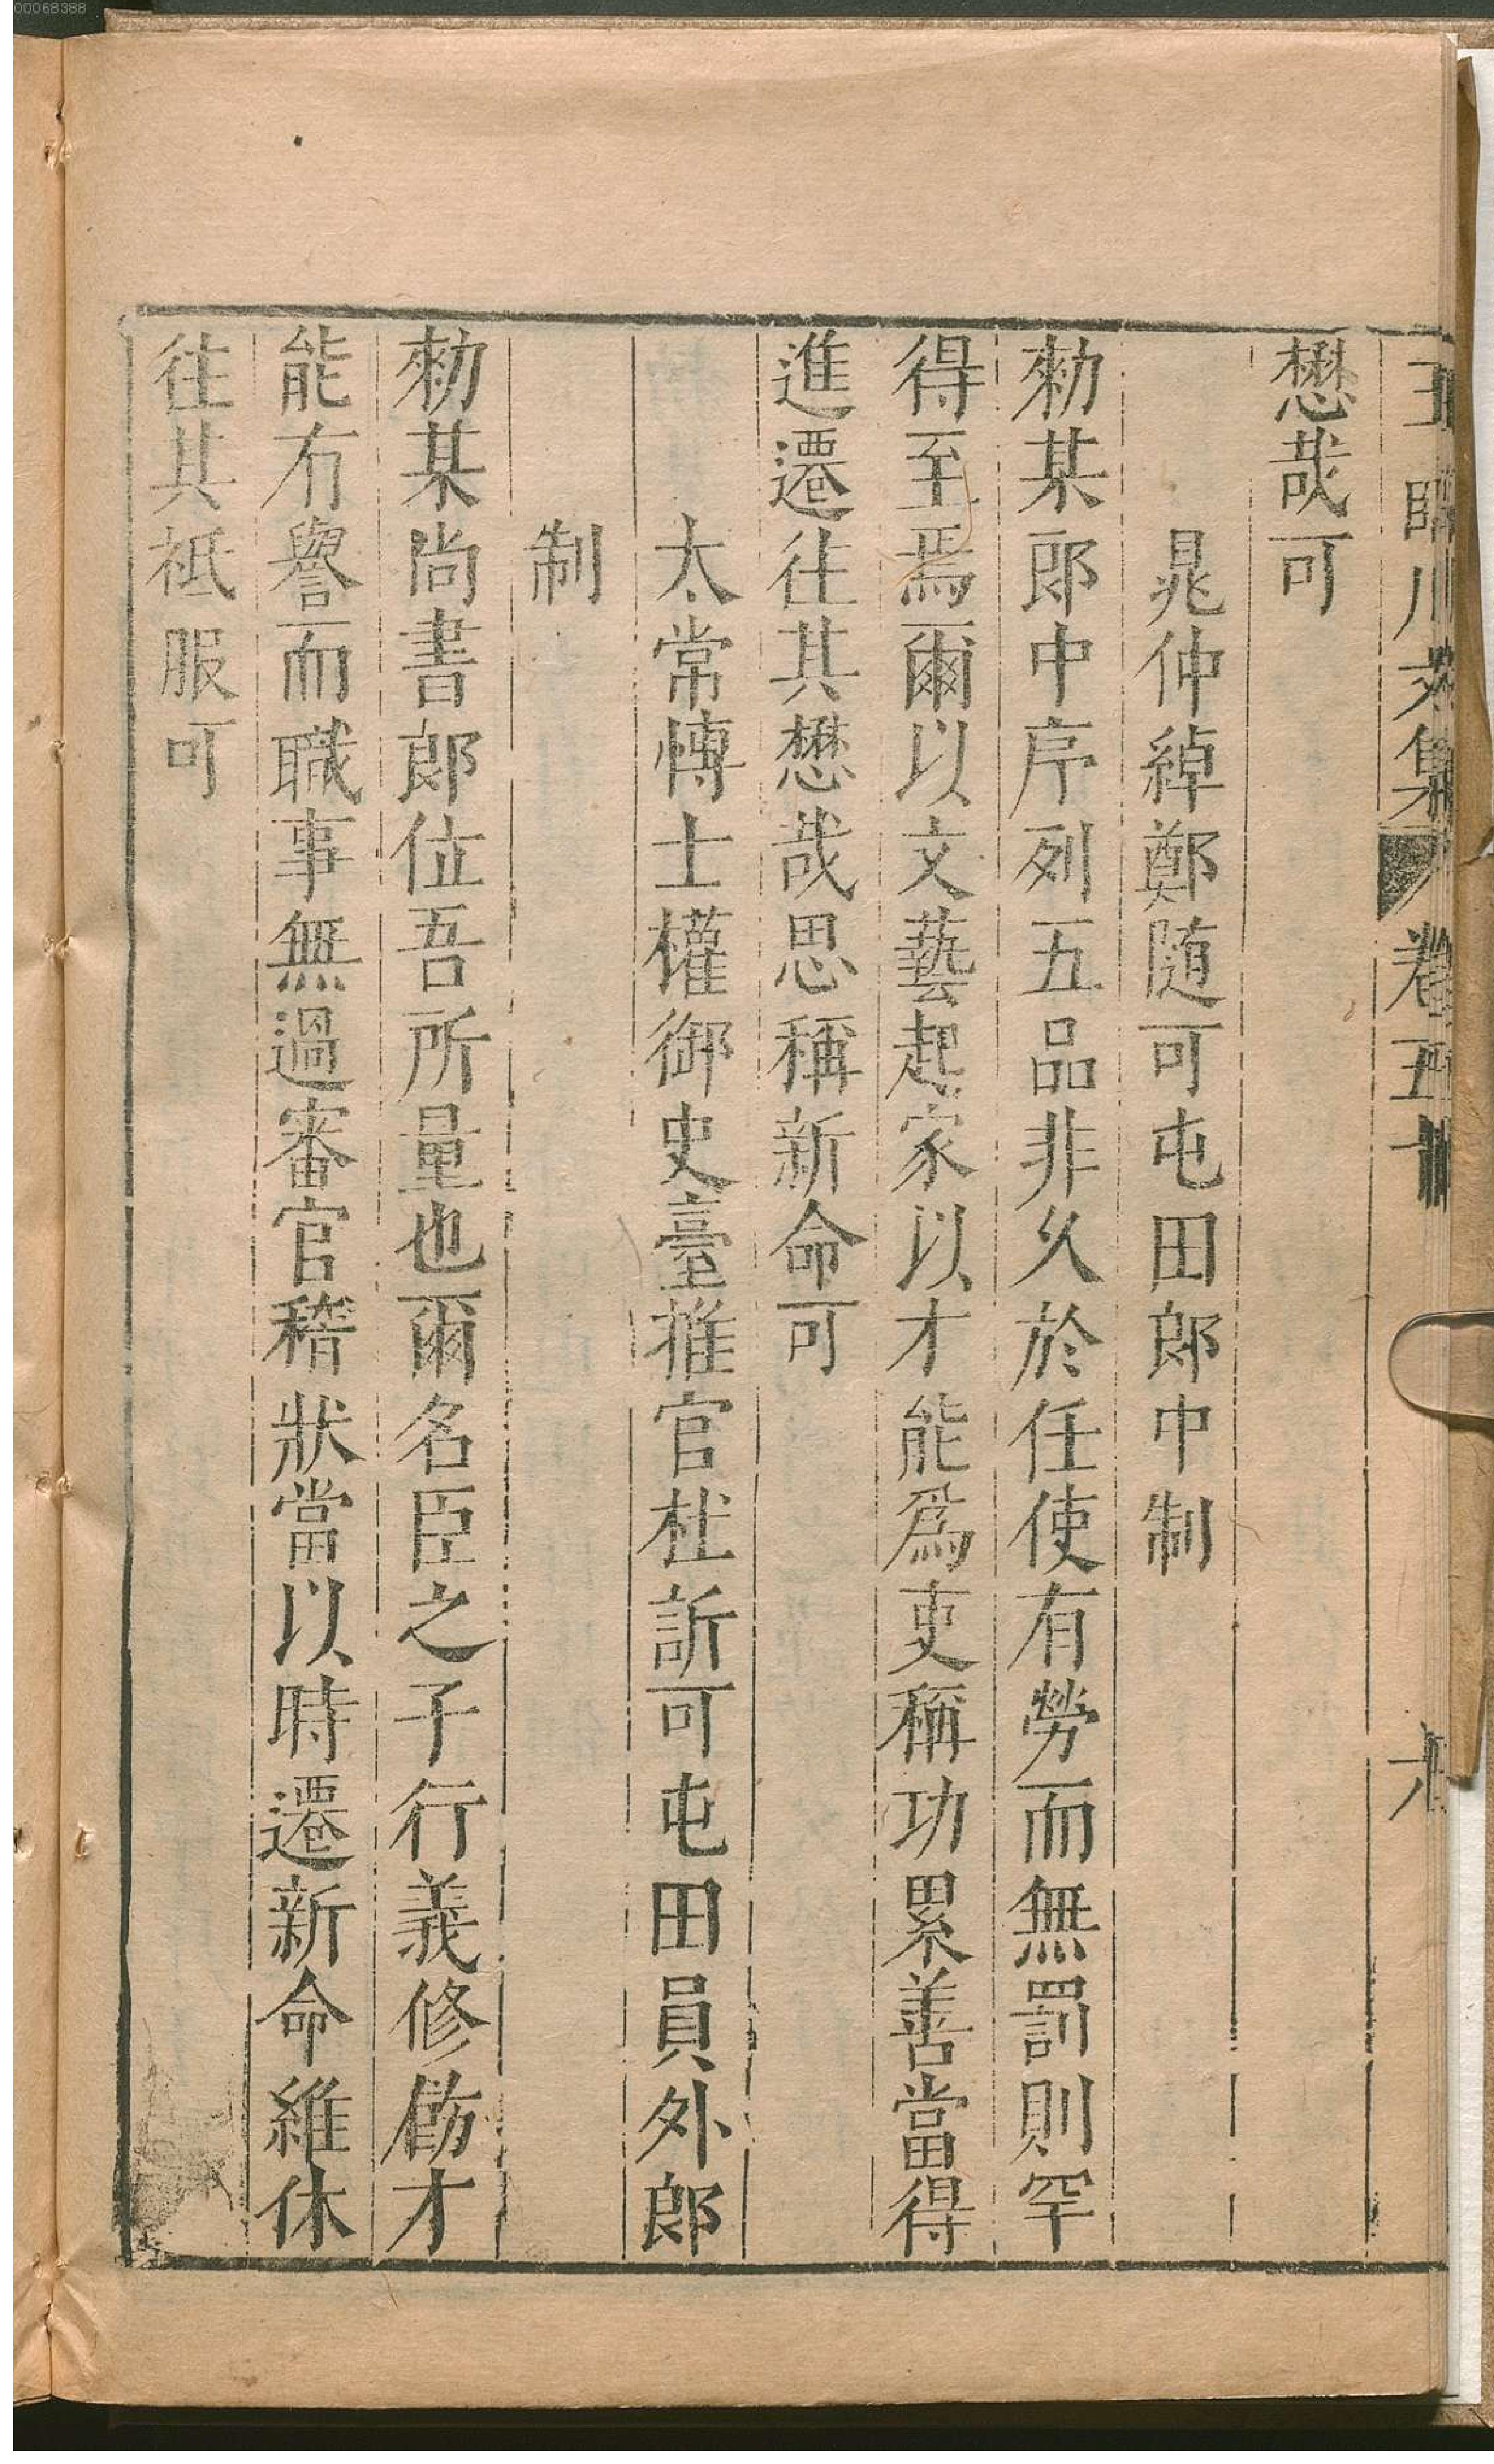 00068388
王臨川文集
卷五十
九
懋哉可
晁仲綽鄭随可屯田郎中制
勑某郎中序列五品非久於任使有勞而無罰則罕
得至焉爾以文藝起家以才能爲吏稱功累善當得
進遷往其懋哉思稱新命可
太常愽士權御史臺推官杜訢可屯田員外郎
制
勑某尚書郎位吾所量也爾名臣之子行義修飭才
能有譽而職事無過審官稽狀當以時遷新命維休
往其祇服可